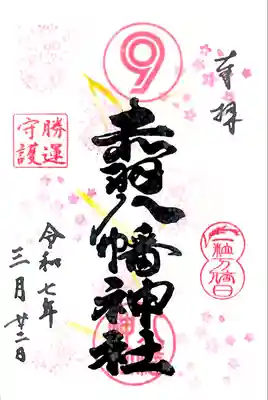 奉拝
一粒万倍日
⑨
赤羽八幡神社
勝運
守護
令和七年
三月廿二日